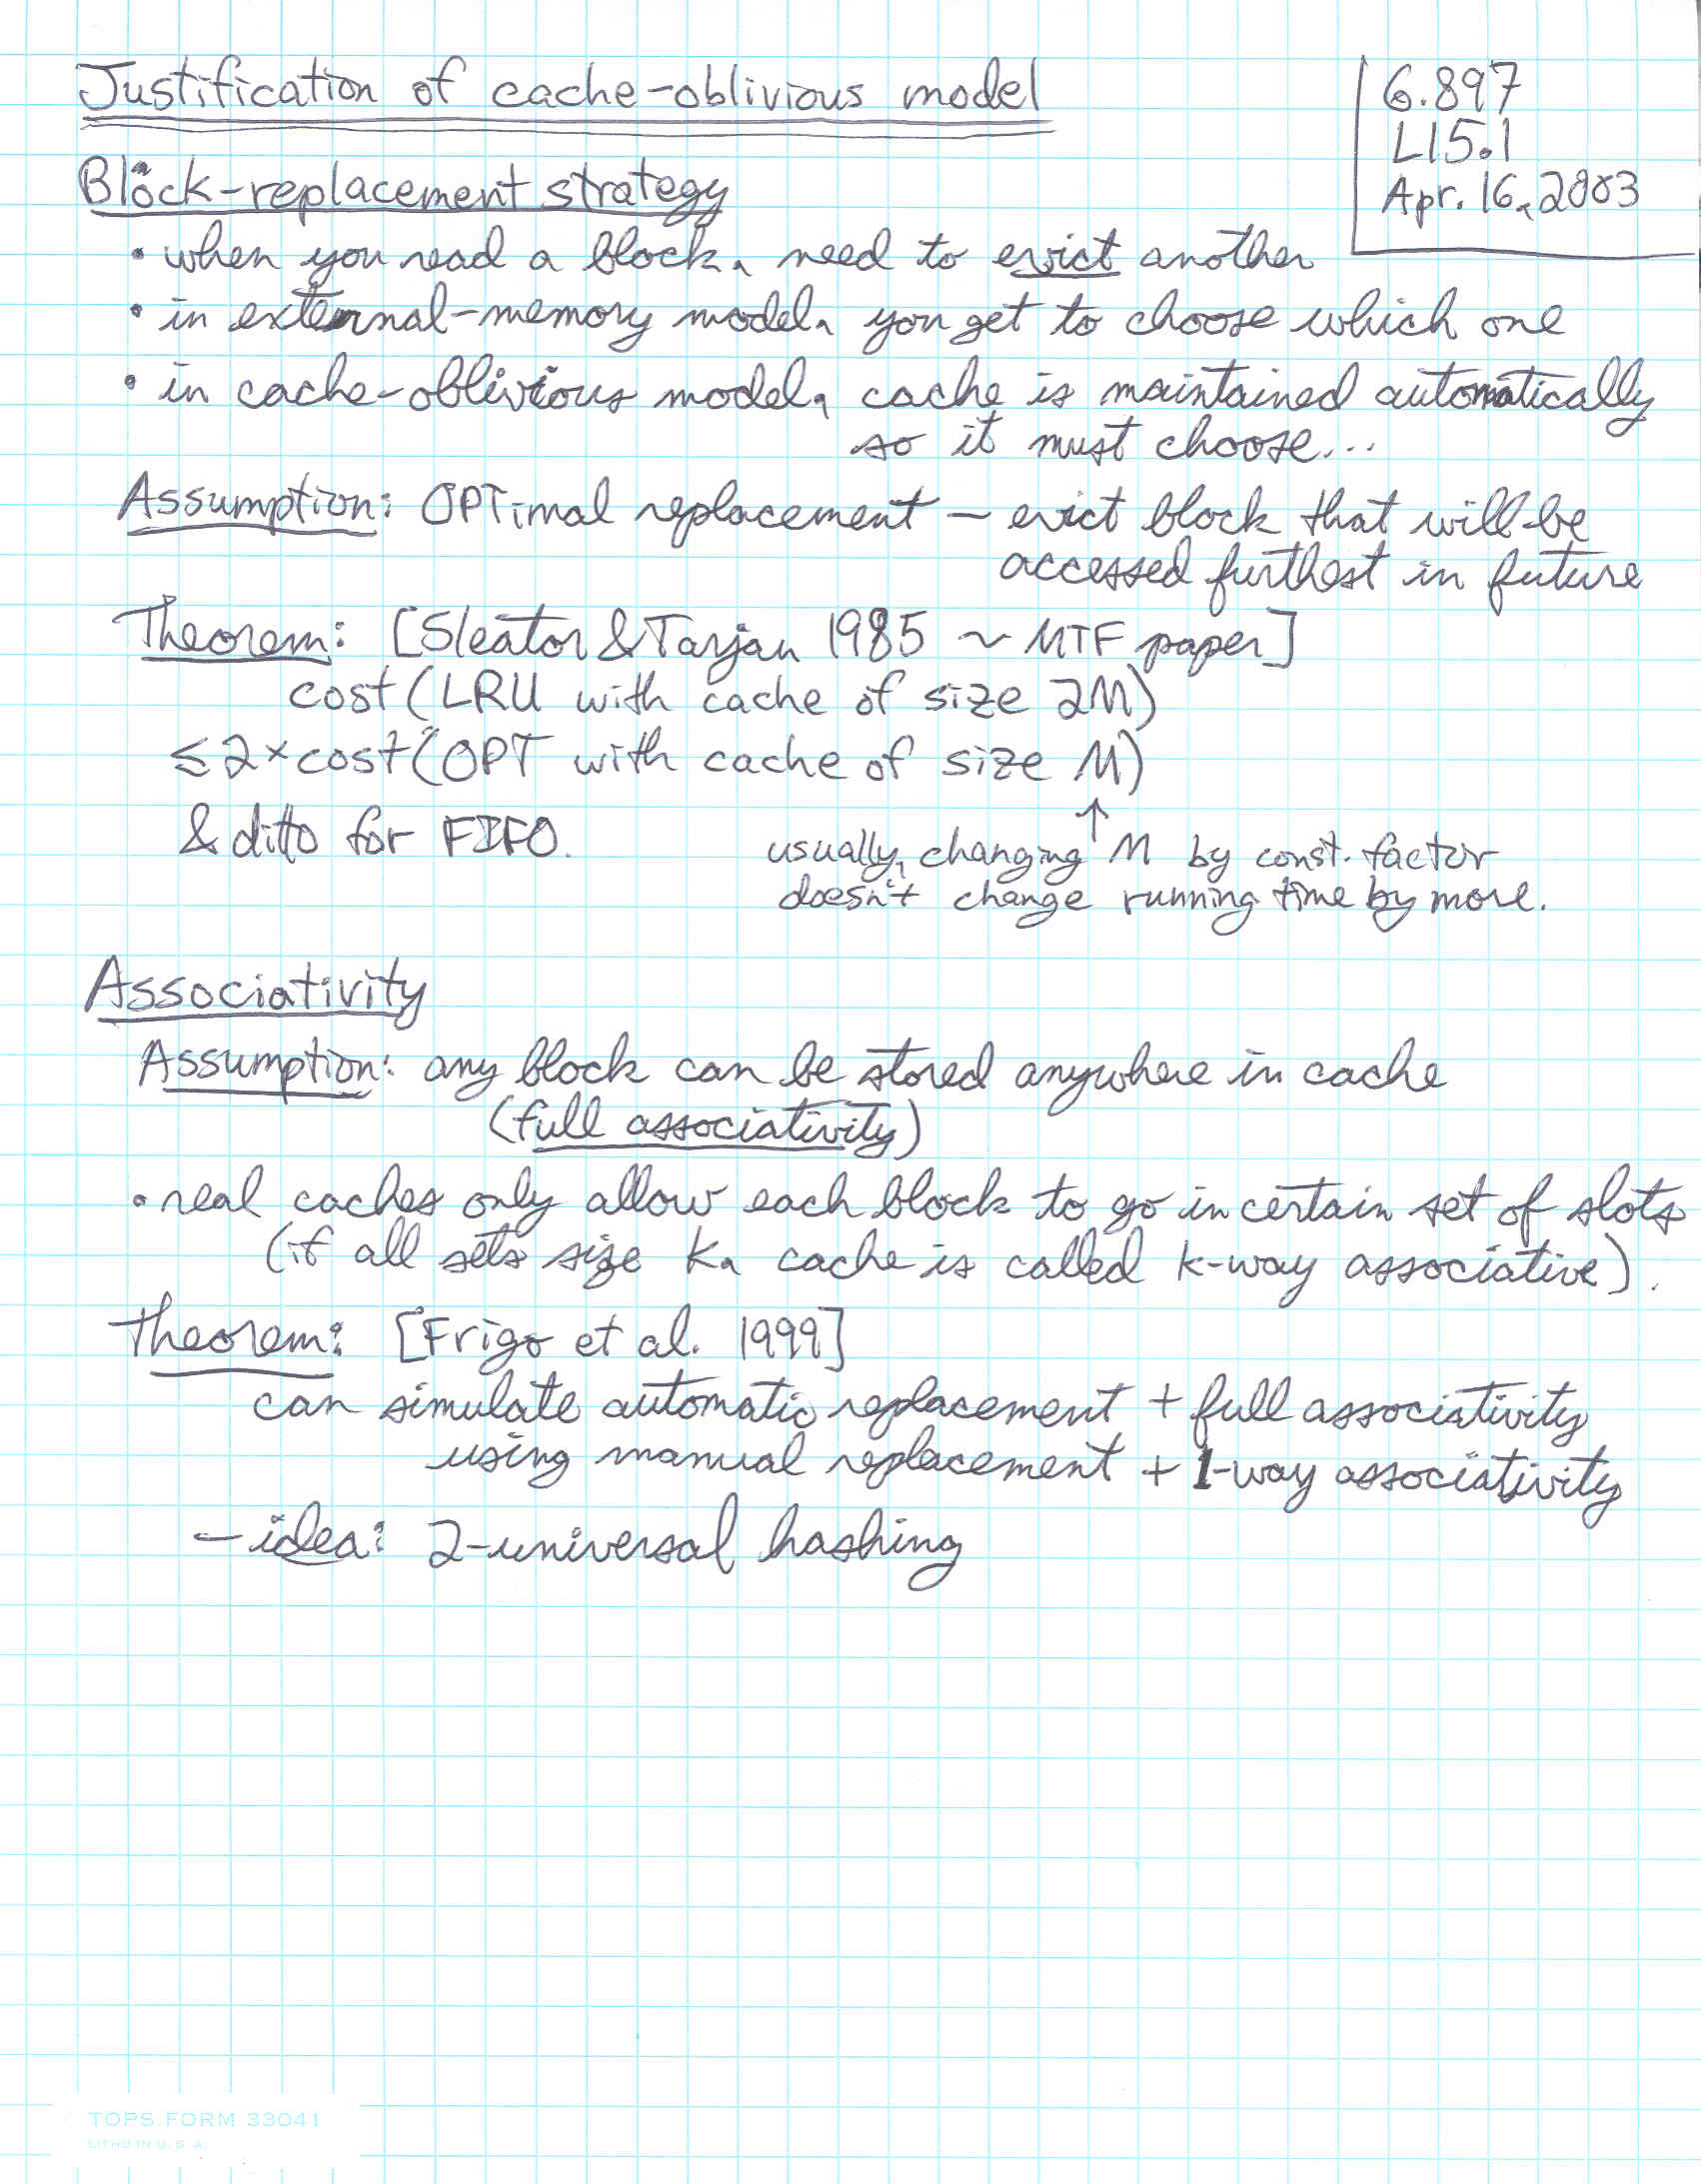 Justification of cache-oblivious model
6.897
L15.1
Apr. 16, 2003
Block-replacement strategy
• when you read a block, need to evict another
• in external-memory model, you get to choose which one
• in cache-oblivious model, cache is maintained automatically
so it must choose...
Assumption: OPTimal replacement — evict block that will be
accessed furthest in future
Theorem: [Sleator & Tarjan 1985 ~ MTF paper]
cost(LRU with cache of size 2M)
≤ 2 × cost(OPT with cache of size M)
& ditto for FIFO.
↑
usually, changing M by const. factor
doesn't change running time by more.
Associativity
Assumption: any block can be stored anywhere in cache
(full associativity)
• real caches only allow each block to go in certain set of slots
(if all sets size k, cache is called k-way associative).
Theorem: [Frigo et al. 1999]
can simulate automatic replacement + full associativity
using manual replacement + 1-way associativity
— idea: 2-universal hashing
TOPS FORM 33041
LITHO IN U. S. A.